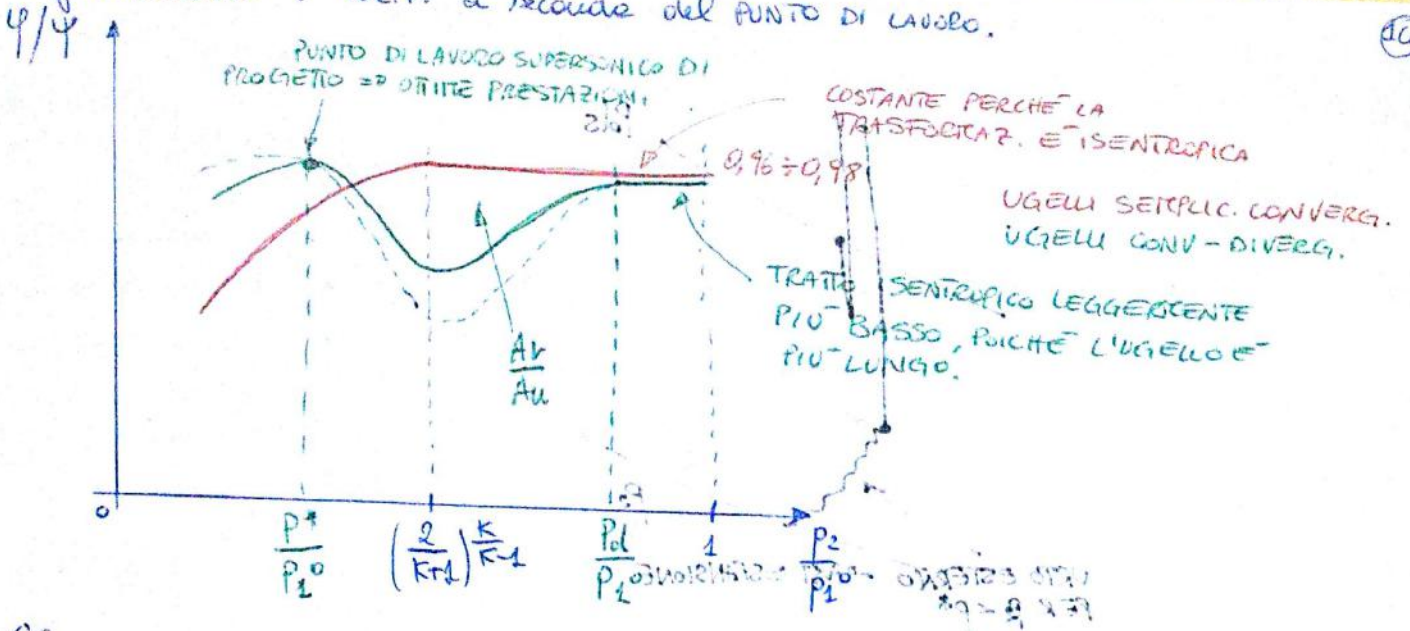 a seconda del PUNTO DI LAVORO.
φ/ψ
PUNTO DI LAVORO SUPERSONICO DI
PROGETTO => OTTIME PRESTAZIONI
COSTANTE PERCHÉ LA
TRASFORMAZ. E' ISENTROPICA
0,96 ÷ 0,98
UGELLI SEMPLIC. CONVERG.
UGELLI CONV-DIVERG.
TRATTO ISENTROPICO LEGGERMENTE
PIU' BASSO, POICHÉ L'UGELLO E'
PIU' LUNGO.
Av/Au
0
P*/P1°
(2/K+1)^K/K-1
Pd/P1°
1
P2/P1°